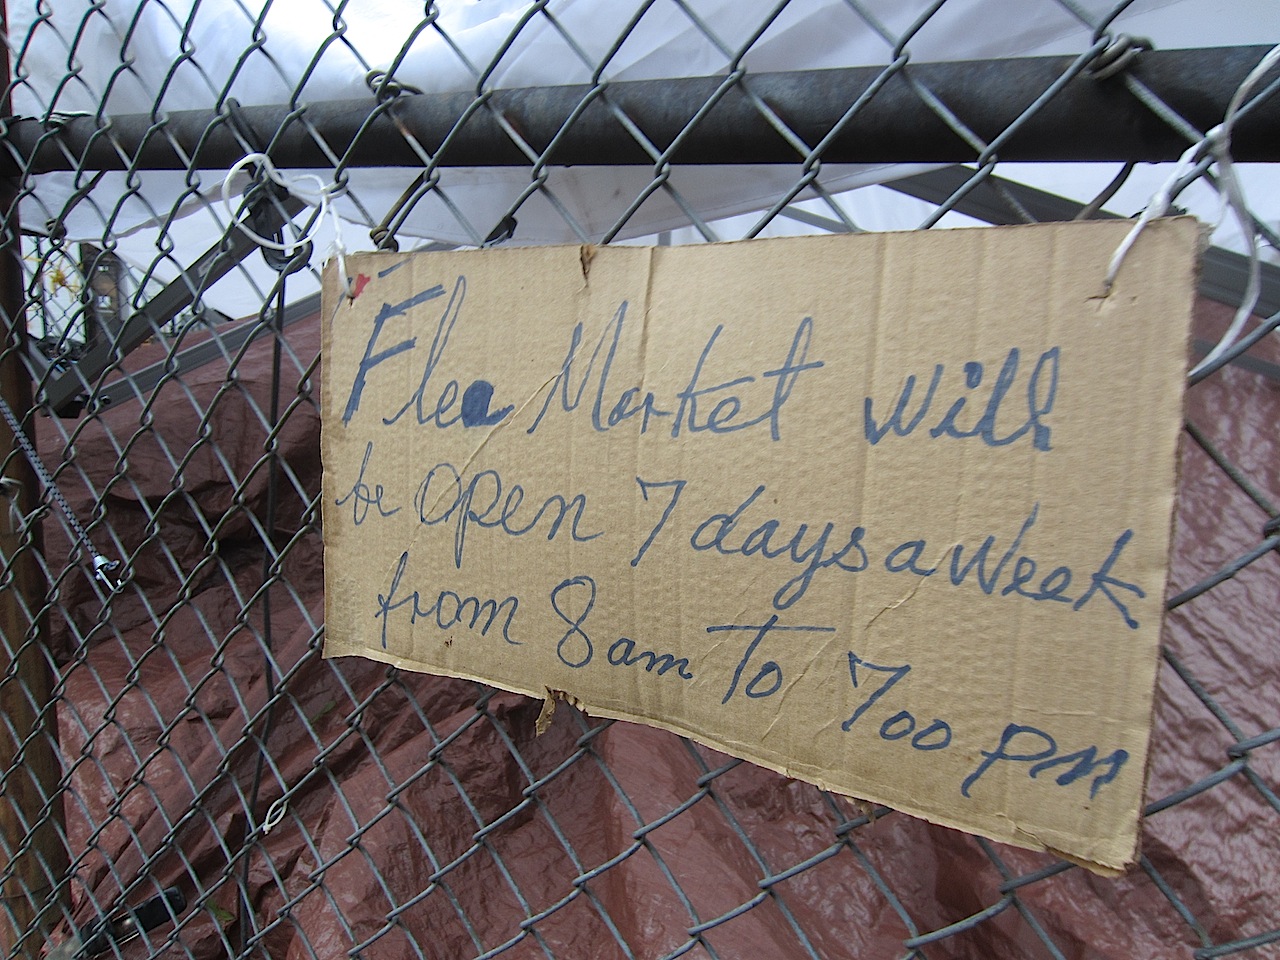 Flea Market will
be open 7 days a week
from 8am To 700 pm